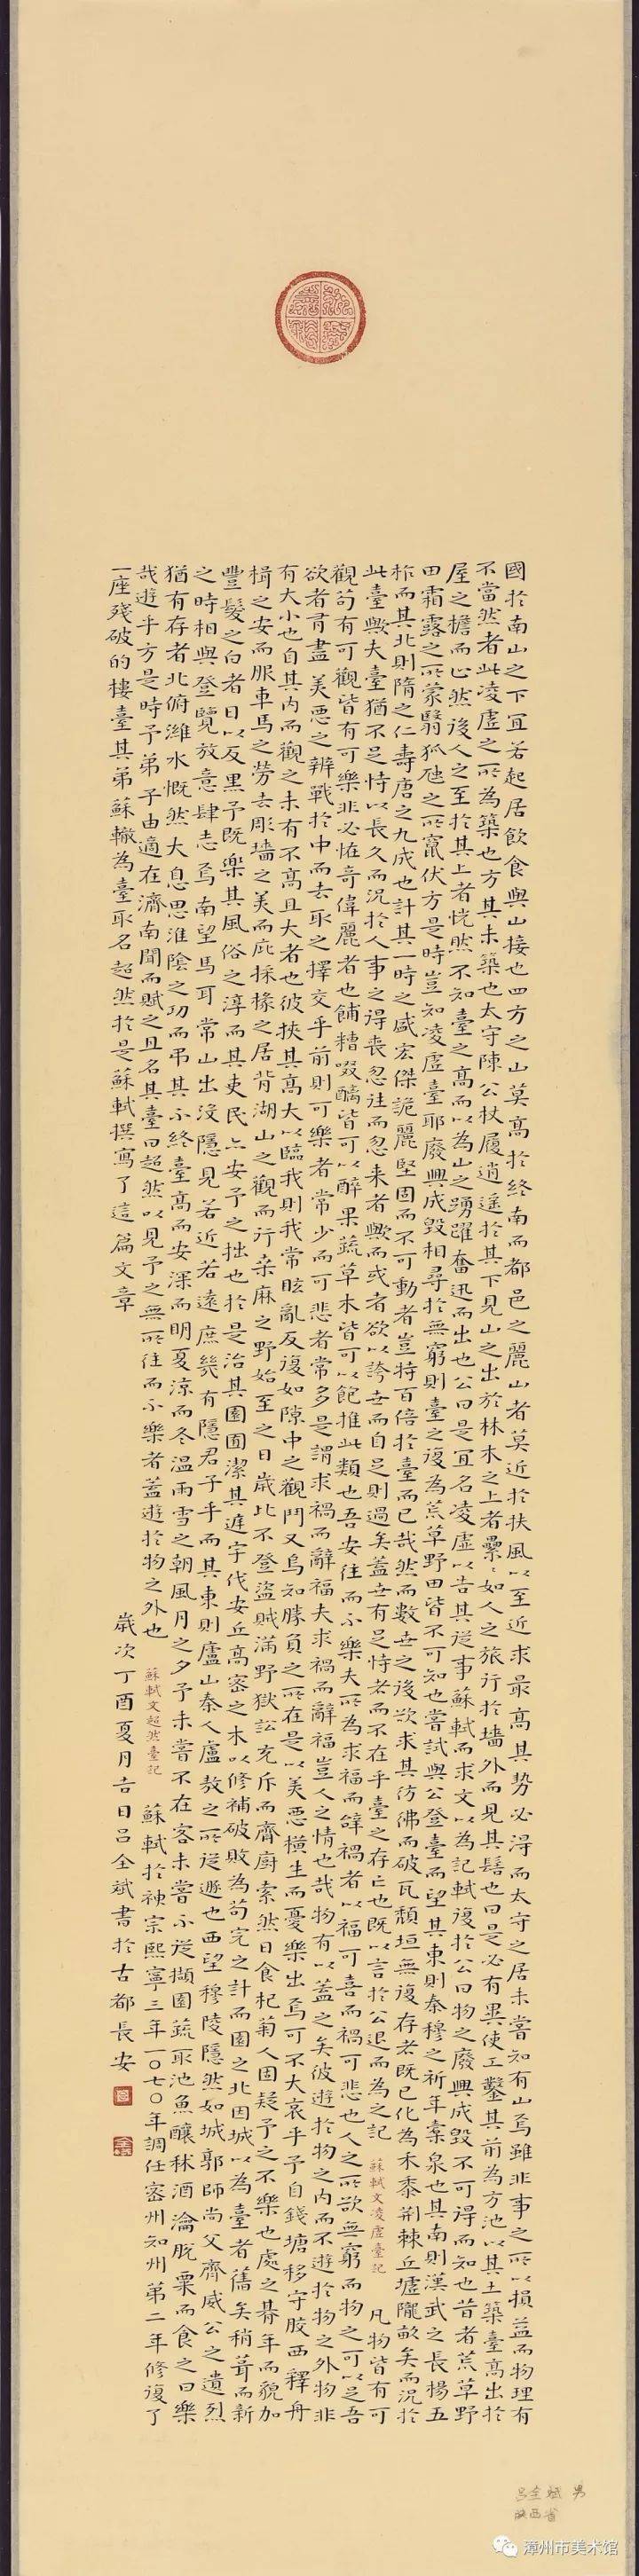 國於南山之下宜若起居飲食與山接也四方之山莫高於終南而都邑之麗山者莫近於扶風以至近求最高其势必得而太守之居未嘗知有山焉雖非事之所以損益而物理有
不當然者此凌虛之所為築也方其未築也太守陳公杖履逍遙於其下見山之出於林木之上者纍〻如人之旅行於墻外而見其髻也曰是必有異使工鑿其前為方池以其土築臺高出於
屋之檐而止然後人之至於其上者恍然不知臺之高而以為山之踴躍奮迅而出也公曰是宜名凌虛以告其從事蘇軾而求文以為記軾復於公曰物之廢興成毀不可得而知也昔者荒草野
田霜露之所蒙翳狐虺之所竄伏方是時豈知凌虛臺耶廢興成毀相尋於無窮則臺之復為荒草野田皆不可知也嘗試與公登臺而望其東則秦穆之祈年橐泉也其南則漢武之長楊五
柞而其北則隋之仁壽唐之九成也計其一時之盛宏傑詭麗堅固而不可動者豈特百倍於臺而已哉然而數世之後欲求其彷彿而破瓦頹垣無復存者既已化為禾黍荊棘丘墟隴畝矣而況於
此臺歟夫臺猶不足恃以長久而況於人事之得喪忽往而忽来者歟而或者欲以誇世而自足則過矣蓋世有足恃者而不在乎臺之存亡也既以言於公退而為之記 蘇軾文凌虛臺記 凡物皆有可
觀苟有可觀皆有可樂非必怪奇偉麗者也餔糟啜醨皆可以醉果蔬草木皆可以飽推此類也吾安往而不樂夫所為求福而辭禍者以福可喜而禍可悲也人之所欲無窮而物之可以足吾
欲者有盡美惡之辨戰於中而去取之擇交乎前則可樂者常少而可悲者常多是謂求禍而辭福夫求禍而辭福豈人之情也哉物有以蓋之矣彼遊於物之内而不遊於物之外物非
有大小也自其内而觀之未有不高且大者也彼挾其高大以臨我則我常眩亂反復如隙中之觀鬥又烏知勝負之所在是以美惡橫生而憂樂出焉可不大哀乎予自錢塘移守胶西釋舟
楫之安而服車馬之勞去彫墻之美而庇採椽之居背湖山之觀而行桑麻之野始至之日歲比不登盜賊滿野獄訟充斥而齋廚索然日食杞菊人固疑予之不樂也處之朞年而貌加
豐髮之白者日以反黑予既樂其風俗之淳而其吏民亦安予之拙也於是治其園囿潔其庭宇伐安丘高密之木以修補破敗為苟完之計而園之北因城以為臺者舊矣稍葺而新
之時相與登覽放意肆志焉南望馬耳常山出沒隱見若近若遠庶幾有隱君子乎而其東則廬山秦人盧敖之所從遯也西望穆陵隱然如城郭師尚父齊威公之遺烈
猶有存者北俯濰水慨然大息思淮陰之功而弔其不終臺高而安深而明夏涼而冬溫雨雪之朝風月之夕予未嘗不在客未嘗不從擷園蔬取池魚釀秫酒瀹脫粟而食之曰樂
哉遊乎方是時予弟子由適在濟南聞而賦之且名其臺曰超然以見予之無所往而不樂者蓋遊於物之外也 蘇軾文超然臺記 蘇軾於神宗熙寧三年一〇七〇年調任密州知州第二年修復了
一座殘破的樓臺其弟蘇轍為臺取名超然於是蘇軾撰寫了這篇文章 歲次丁酉夏月吉日吕全斌書於古都長安
吕全斌 男
陕西省
漳州市美术馆